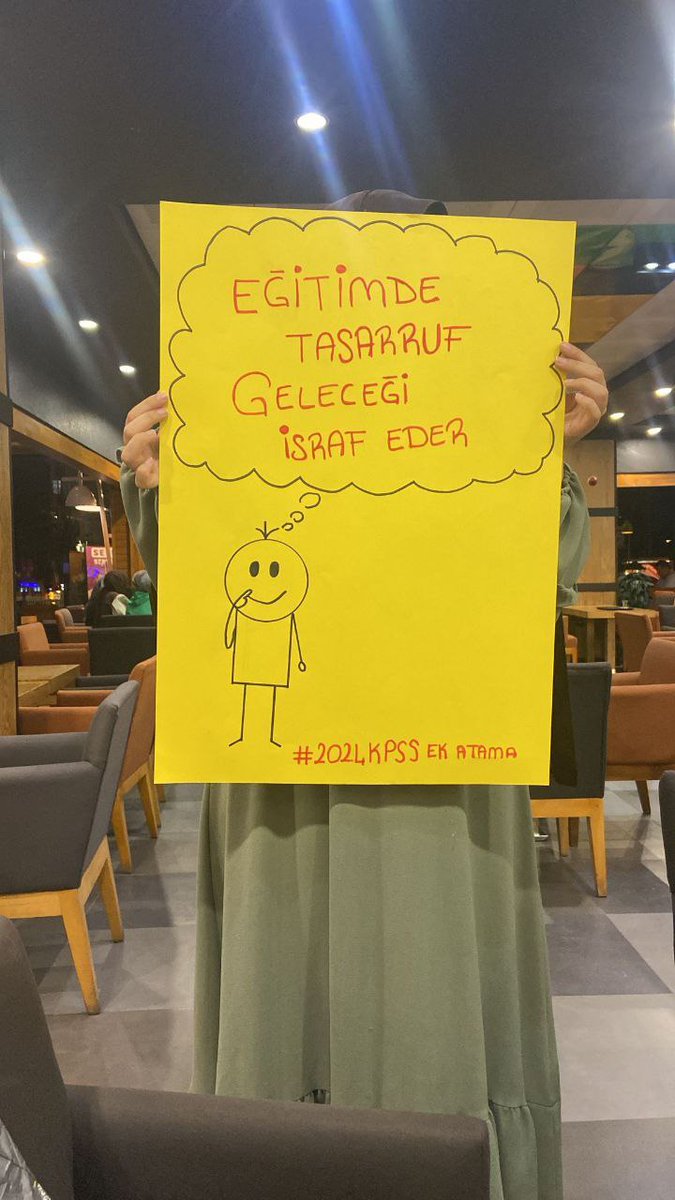 EĞİTİMDE
TASARRUF
GELECEĞİ
İSRAF EDER
#2024KPSS EK ATAMA